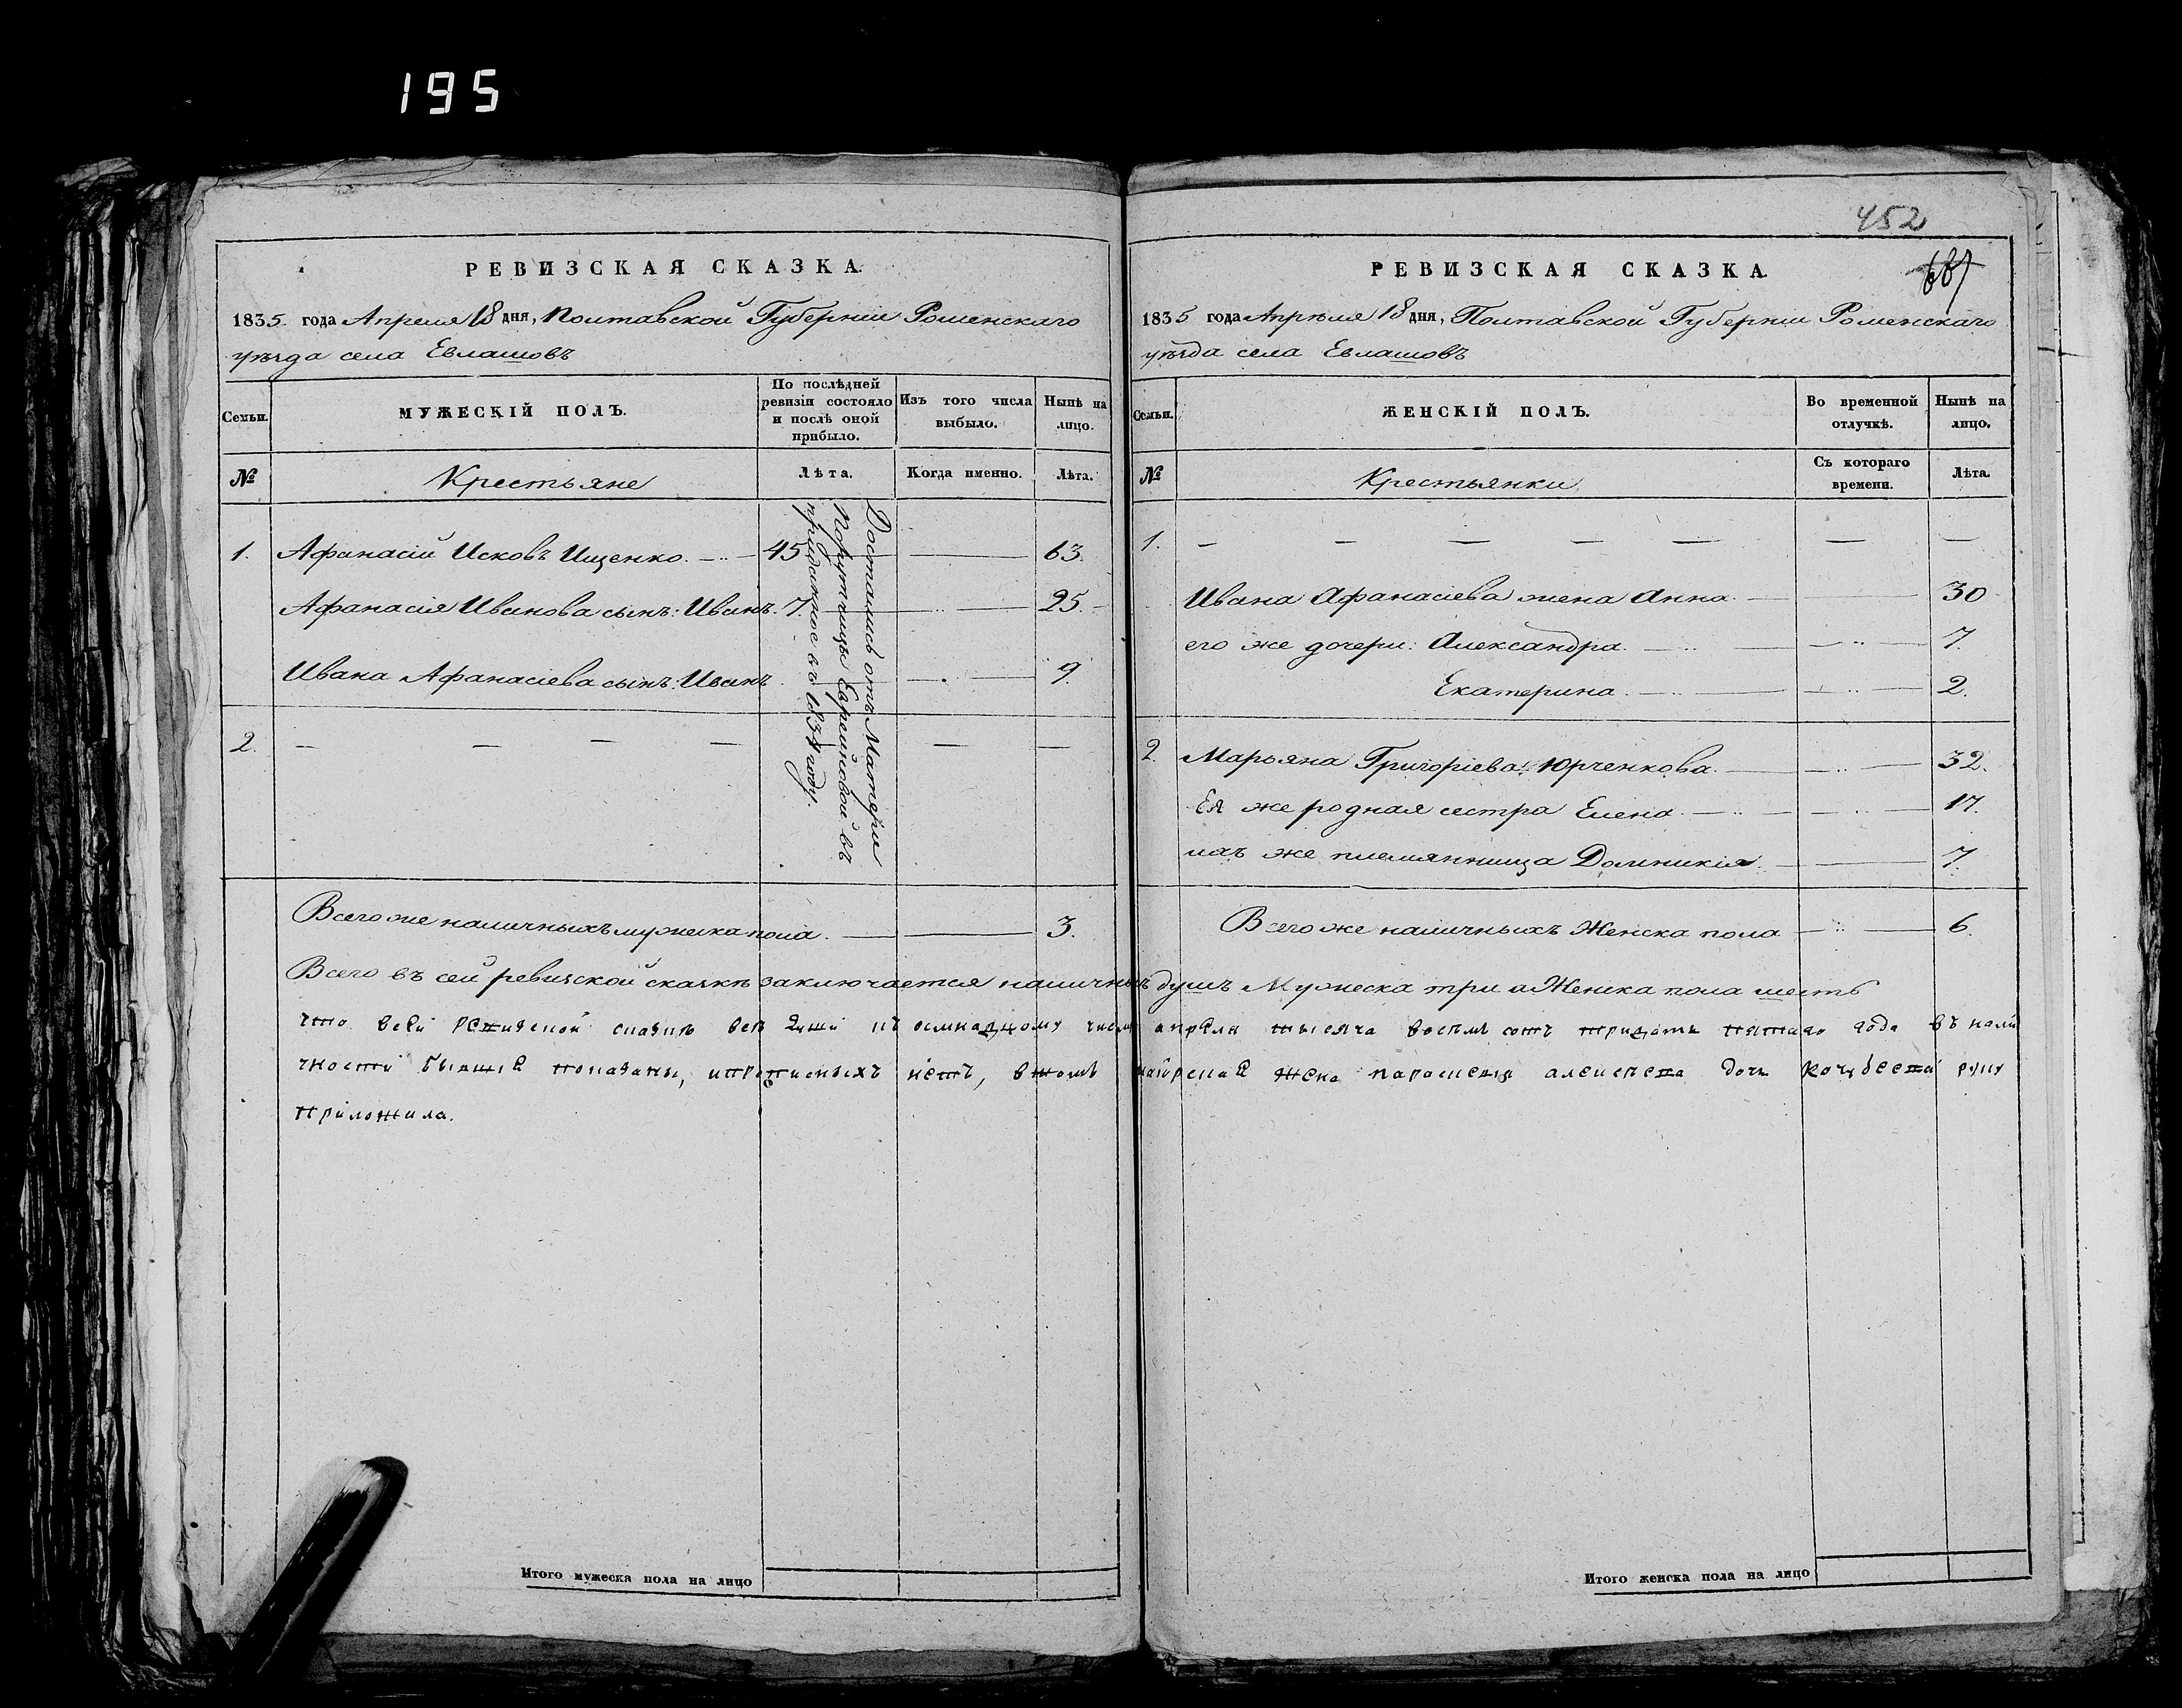 195
РЕВИЗСКАЯ СКАЗКА.
1835. года Апреля 18 дня, Полтавской Губерніи Роменскаго
уѣзда села Евлашовъ
Семьи.
МУЖЕСКІЙ ПОЛЪ.
По послѣдней ревизіи состояло и послѣ оной прибыло.
Изъ того числа выбыло.
Нынѣ на лицо.
№
Крестьяне
Лѣта.
Когда именно.
Лѣта.
1. Афанасій Исковъ Ищенко. 45 63.
Афанасія Иванова сынъ: Иванъ. 7. 25.
Ивана Афанасіева сынъ: Иванъ 9.
Достались отъ Матери
Порутчицы Еврейновой въ
приданное въ 1834 году.
2.
Всего же наличныхъ мужеска пола. 3.
452
РЕВИЗСКАЯ СКАЗКА.
1835 года Апрѣля 18 дня, Полтавской Губерніи Роменскаго
уѣзда села Евлашовъ
Семьи.
ЖЕНСКІЙ ПОЛЪ.
Во временной отлучкѣ.
Нынѣ на лицо.
№
Крестьянки
Съ котораго времени.
Лѣта.
1.
Ивана Афанасіева жена Анна. 30
его же дочери: Александра. 7.
Екатерина. 2.
2. Марьяна Григоріева Юрченкова. 32.
Ея же родная сестра Елена. 17.
ихъ же племянница Домникія. 7.
Всего же наличныхъ Женска пола 6.
Всего въ сей ревизской сказкѣ заключается наличныхъ душъ Мужеска три и Женска пола шесть
что всей ревизской сказкѣ всѣ души къ осмнадцому числу апреля тысяча восемъ сотъ тридцать пятаго года въ нали
чности бывшіе показаны, ипрописныхъ нетъ, втомъ жена парасковія алексѣева дочь кочубеева руку
приложила.
Итого мужеска пола на лицо
Итого женска пола на лицо